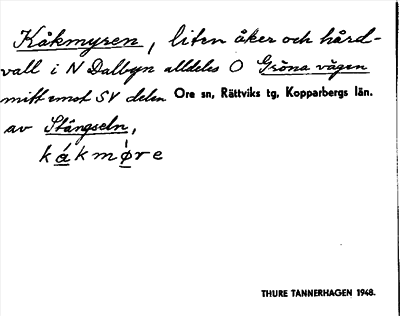 Kåkmyren, liten åker och hård-
vall i N Dalbyn alldeles O Gröna vägen
mitt emot SV delen Ore sn, Rättviks tg, Kopparbergs län.
av Stångseln,
kákmøre
THURE TANNERHAGEN 1948.